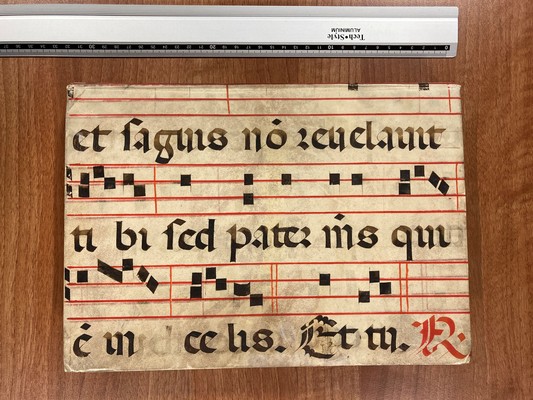 Tech•Style
ALUMINIUM
et ſaguis nō reuelauit
ti bi ſed pater m̄s qui
ē in ce lis. Et tu. R.